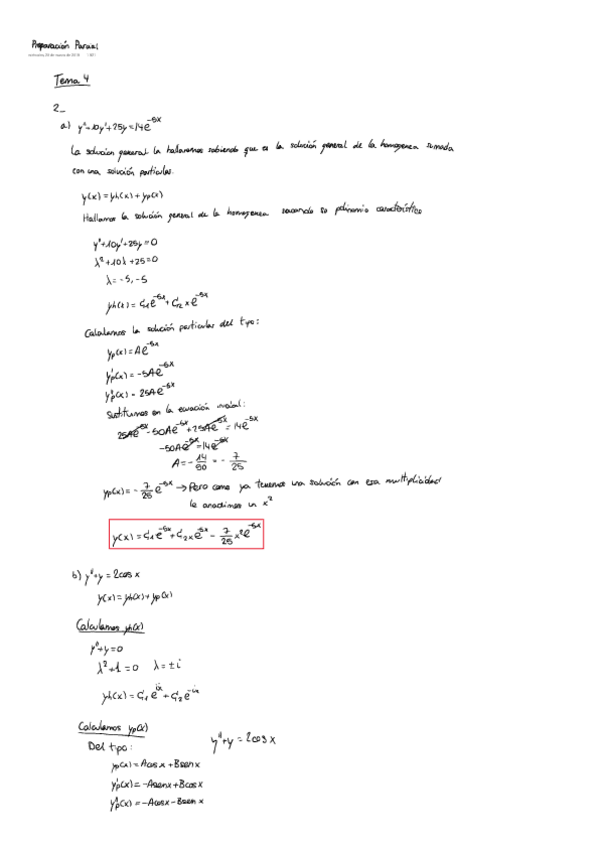 Preparación Parcial
Tema 4
2_
a) y''+10y'+25y=14e^-5x
La solución general la hallaremos sabiendo que es la solución general de la homogenea sumada
con una solución particular.
y(x)=yh(x)+yp(x)
Hallamos la solución general de la homogenea sacando su polinomio característico
y''+10y'+25y=0
λ²+10λ+25=0
λ=-5,-5
yh(x)=C1e^-5x+C2xe^-5x
Calculamos la solución particular del tipo:
yp(x)=Ae^-5x
y'p(x)=-5Ae^-5x
y''p(x)=25Ae^-5x
Sustituimos en la ecuación inicial:
25Ae^-5x-50Ae^-5x+25Ae^-5x=14e^-5x
-50Ae^-5x=14e^-5x
A=-14/50=-7/25
yp(x)=-7/25e^-5x→Pero como ya tenemos una solución con esa multiplicidad
le anadimos un x²
y(x)=C1e^-5x+C2xe^-5x-7/25x²e^-5x
b) y''+y=2cosx
y(x)=yh(x)+yp(x)
Calculamos yh(x)
y''+y=0
λ²+1=0 λ=±i
yh(x)=C1e^ix+C2e^-ix
Calculamos yp(x)
Del tipo: y''+y=2cosx
yp(x)=Acosx+Bsenx
y'p(x)=-Asenx+Bcosx
y''p(x)=-Acosx-Bsenx